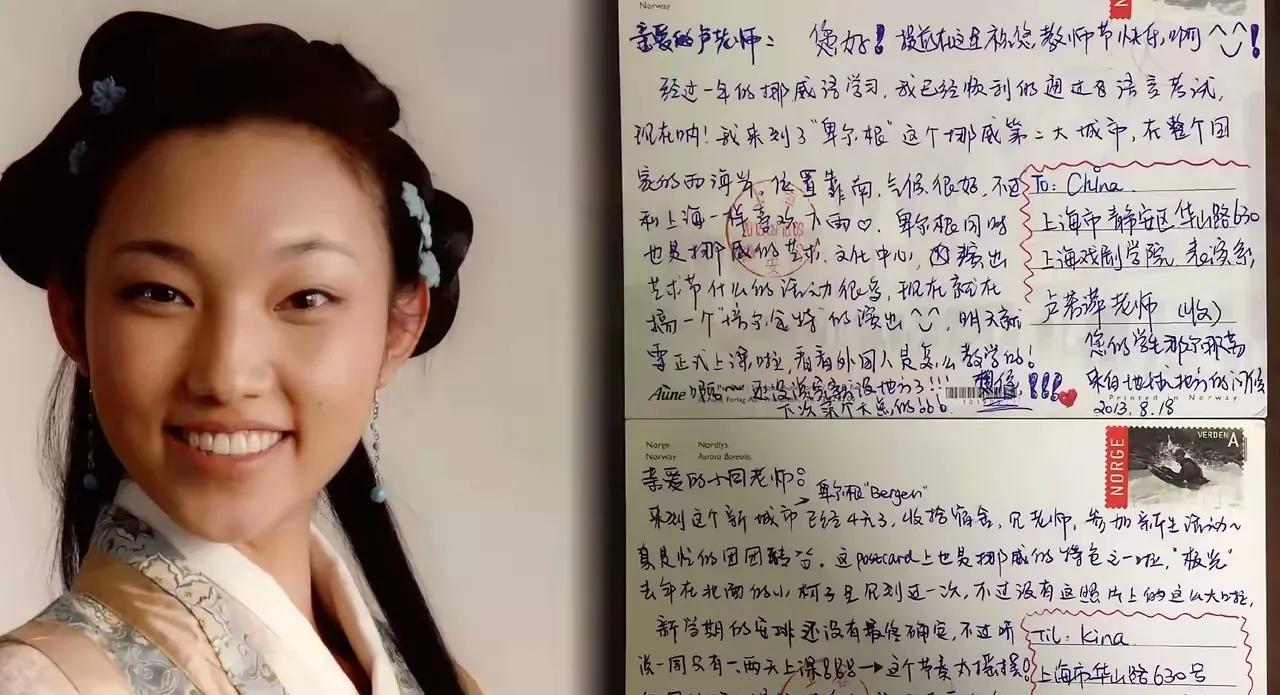 Norway
亲爱的卢老师： 您好！提前在这里祝您教师节快乐啊^_^！
经过一年的挪威语学习，我已经顺利的通过了语言考试，
现在呐！我来到了“卑尔根”这个挪威第二大城市，在整个国
家的西海岸，位置靠南，气候很好，不过
和上海一样喜欢下雨♡. 卑尔根同时
也是挪威的艺术、文化中心，演出
艺术节什么的活动很多，现在就在
搞一个“培尔·金特”的演出^_^，明天就
要正式上课啦，看看外国人是怎么教学的！
还没说完就没地方了!!!
下次弄个大点的
想您!!!
To: China
上海市静安区华山路630
上海戏剧学院 表演系
卢若萍老师 (收)
您的学生那尔那芳
来自地球北方的问候
2013.8.18
Aune
Printed in Norway
Norge Nordlys
Norway Aurora Borealis
NORGE
VERDEN A
亲爱的小回老师：
卑尔根“Bergen”
来到这个新城市已经4天了，收拾宿舍，见老师，参加新生活动~
真是忙的团团转哈。这postcard上也是挪威的特色之一啦，“极光”
去年在北面的小村子里见到过一次，不过没有这照片上的这么大啦，
新学期的安排还没有最终确定，不过听
说一周只有一两天上课 → 这个节奏太摇摆
Til: Kina
上海市华山路630号